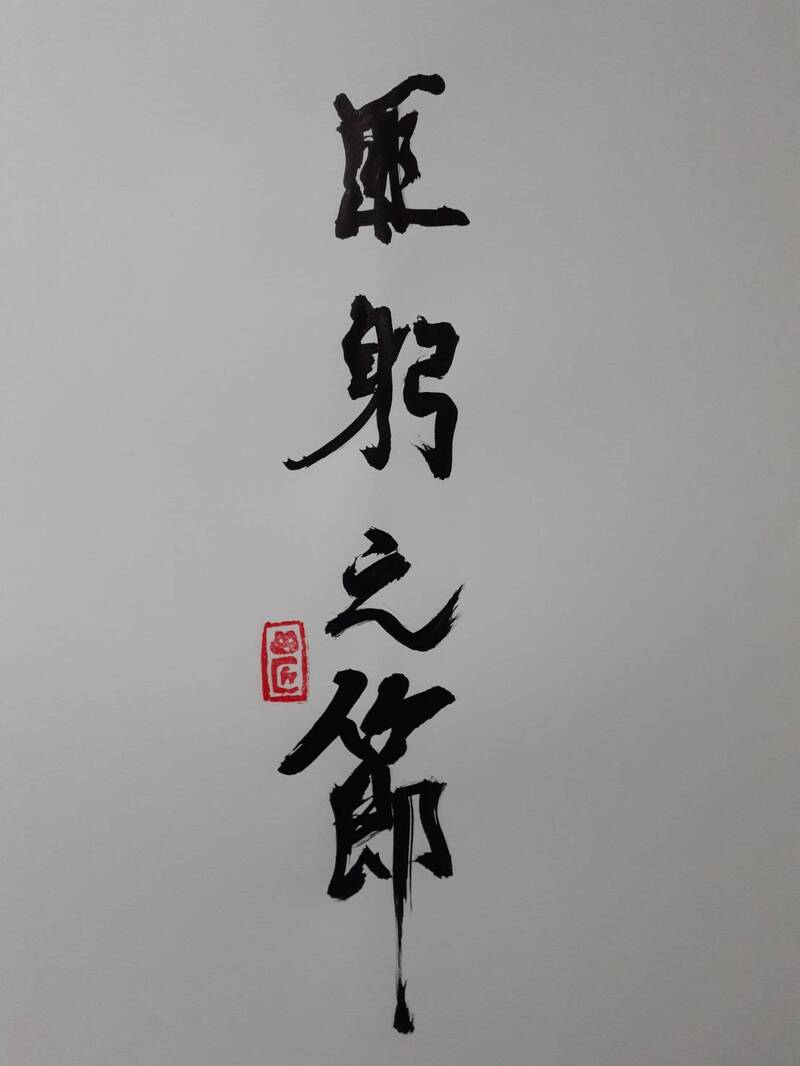 匪躬之節
匠